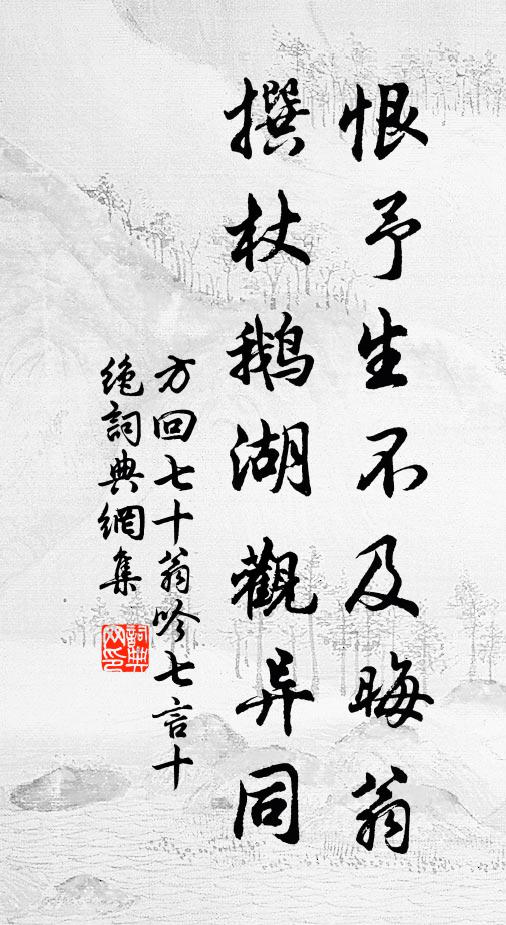 恨予生不及晦翁
撰杖鹅湖觀异同
方回七十翁吟七言十
绝詞典網集
詞典网印